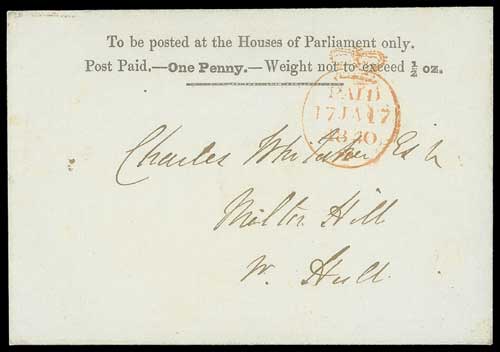 To be posted at the Houses of Parliament only.
Post Paid.—One Penny.—Weight not to exceed ½ oz.
PAID
17 JA 17
1840
Charles Whitaker Esq
Melton Hill
W. Hull